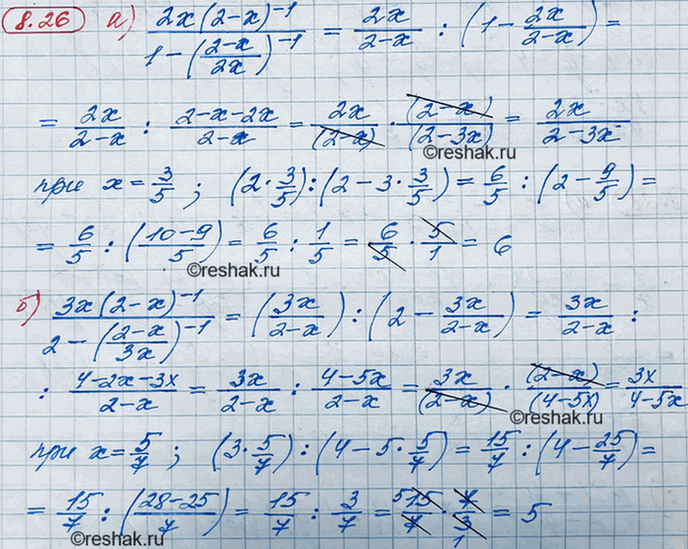 8.26 а) \frac{2x(2-x)^{-1}}{1-(\frac{2-x}{2x})^{-1}} = \frac{2x}{2-x} : (1-\frac{2x}{2-x}) =
= \frac{2x}{2-x} : \frac{2-x-2x}{2-x} = \frac{2x}{(2-x)} \cdot \frac{(2-x)}{(2-3x)} = \frac{2x}{2-3x}
©reshak.ru
при x = \frac{3}{5} ; (2 \cdot \frac{3}{5}) : (2-3 \cdot \frac{3}{5}) = \frac{6}{5} : (2-\frac{9}{5}) =
= \frac{6}{5} : (\frac{10-9}{5}) = \frac{6}{5} : \frac{1}{5} = \frac{6}{5} \cdot \frac{5}{1} = 6
©reshak.ru
б) \frac{3x(2-x)^{-1}}{2-(\frac{2-x}{3x})^{-1}} = (\frac{3x}{2-x}) : (2-\frac{3x}{2-x}) = \frac{3x}{2-x} :
: \frac{4-2x-3x}{2-x} = \frac{3x}{2-x} : \frac{4-5x}{2-x} = \frac{3x}{(2-x)} \cdot \frac{(2-x)}{(4-5x)} = \frac{3x}{4-5x}
©reshak.ru
при x = \frac{5}{7} ; (3 \cdot \frac{5}{7}) : (4-5 \cdot \frac{5}{7}) = \frac{15}{7} : (4-\frac{25}{7}) =
= \frac{15}{7} : (\frac{28-25}{7}) = \frac{15}{7} : \frac{3}{7} = \frac{^5 15}{7} \cdot \frac{7}{3_1} = 5
©reshak.ru